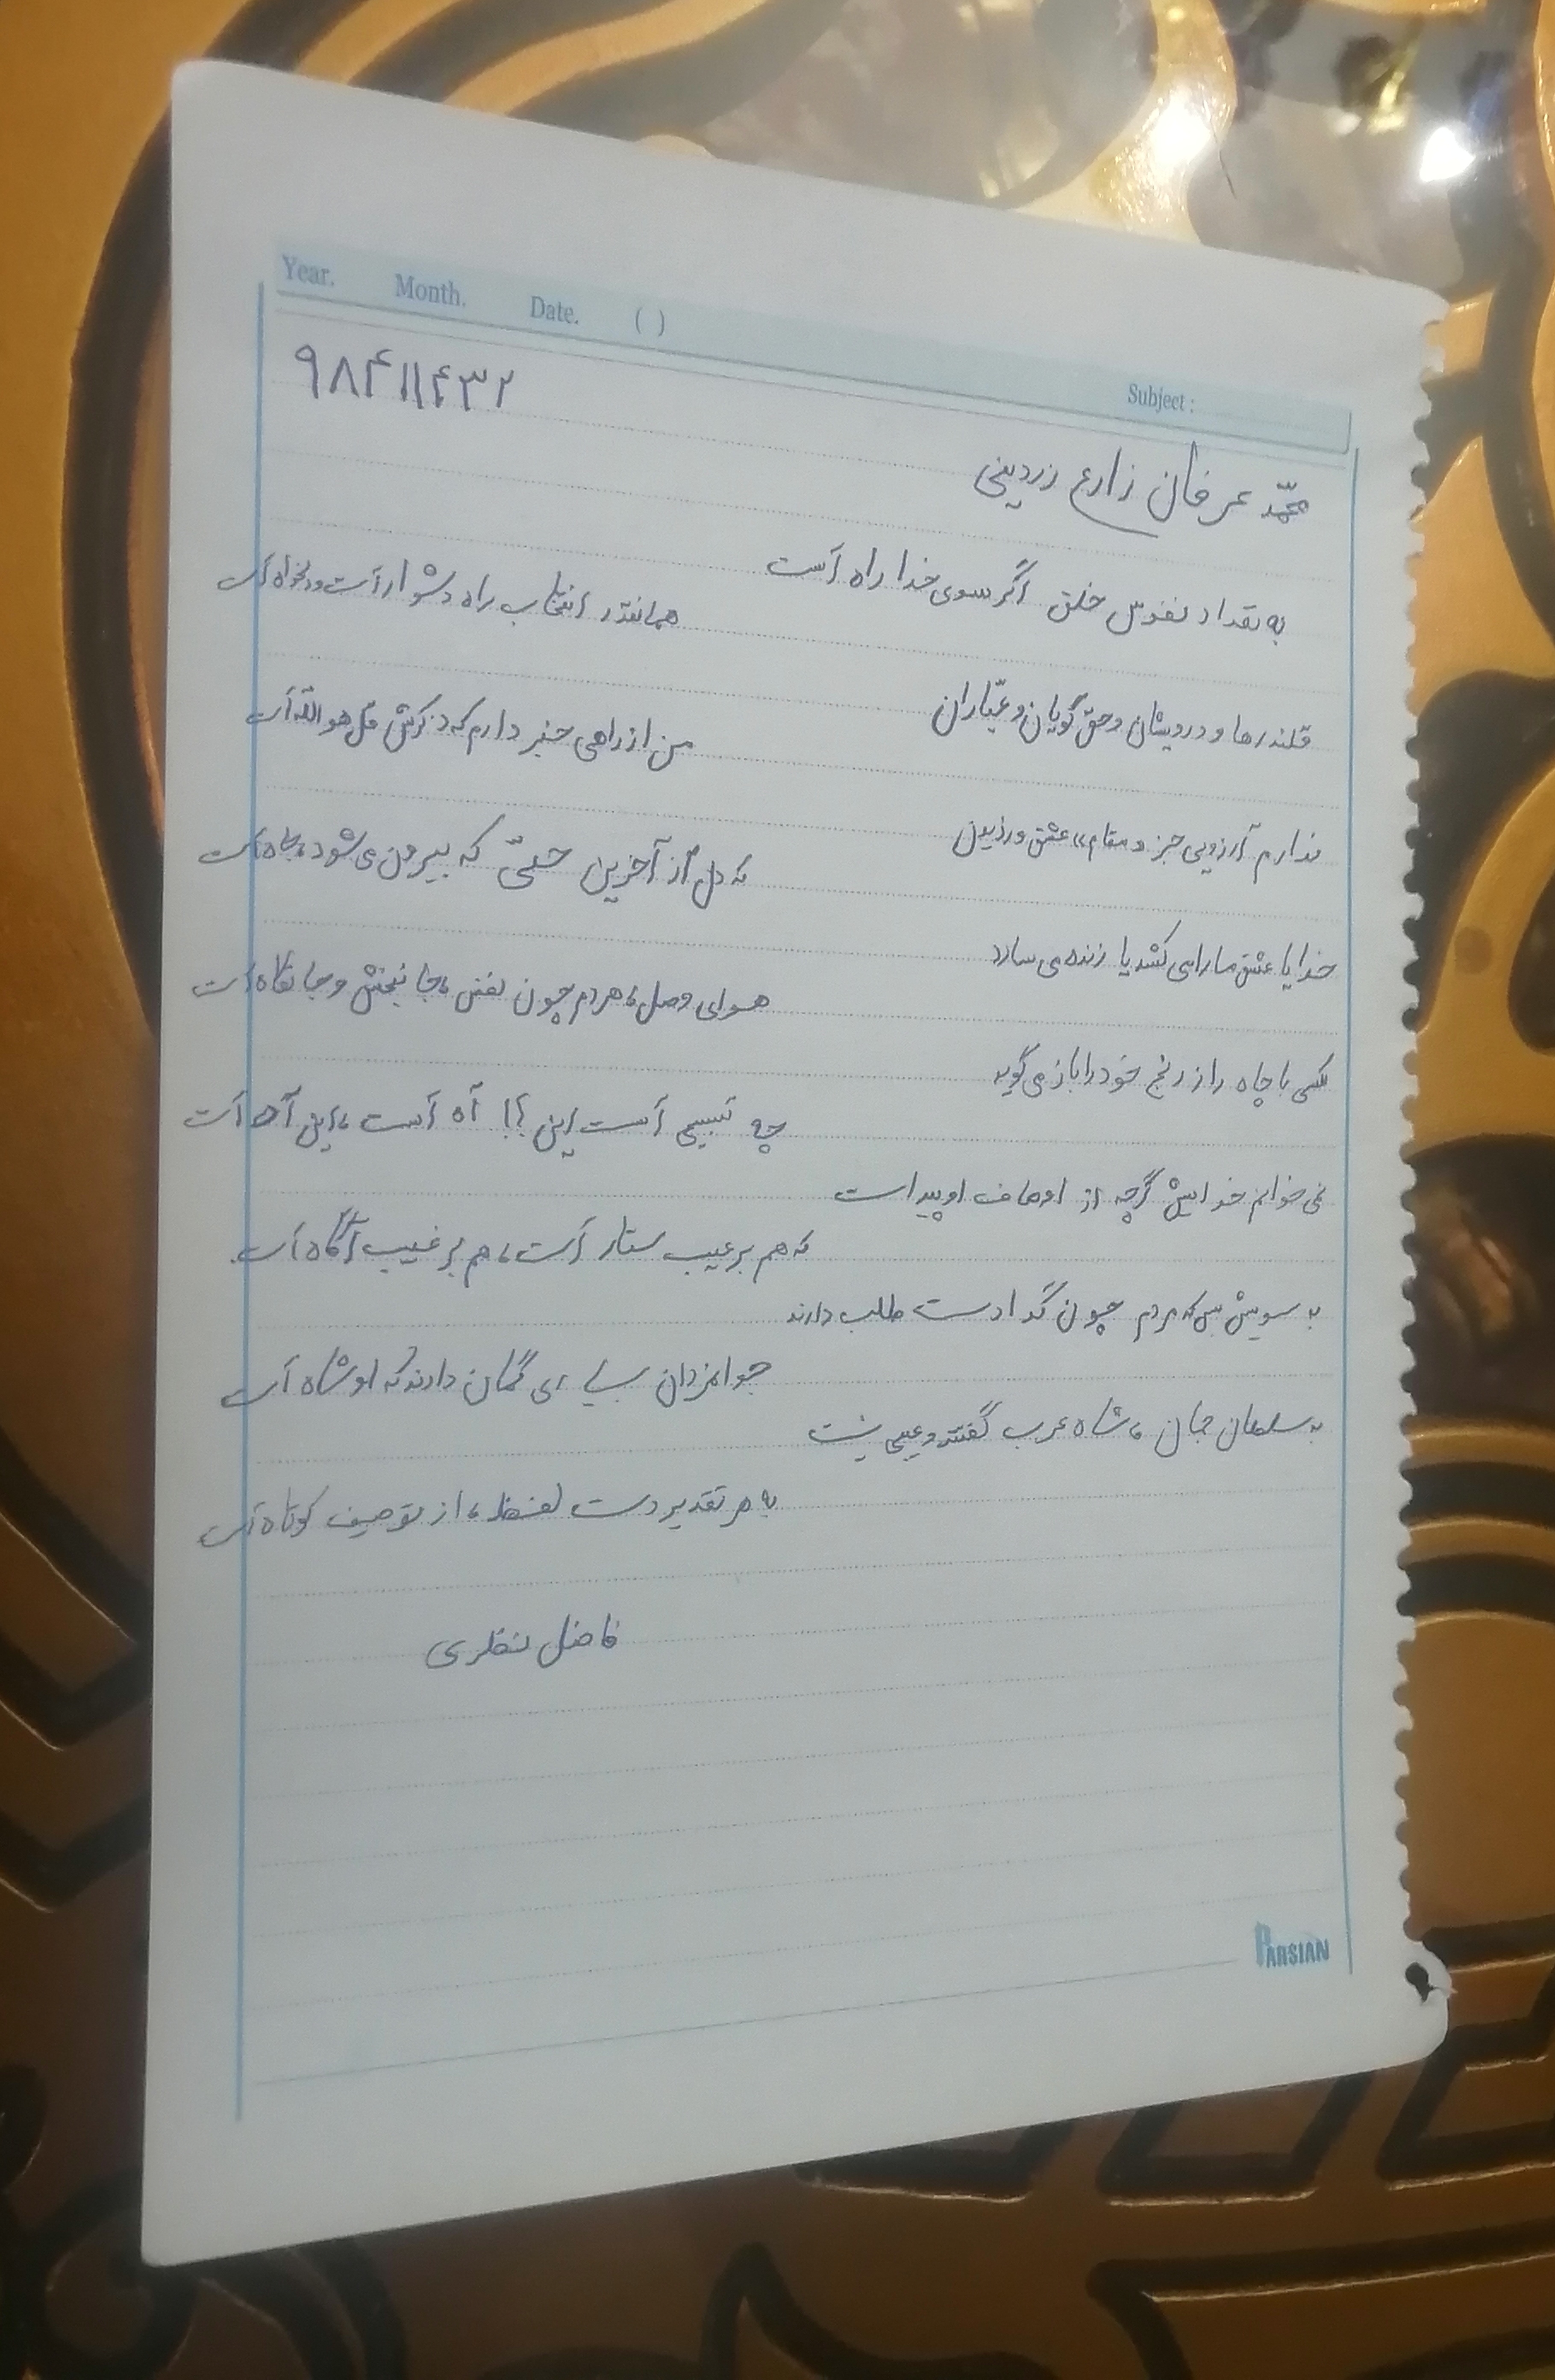 Year. Month. Date. ( )
Subject :
۹۸۴۱۱۴۳۲
محمّد عرفان زارع زردینی
به تعداد نفوس خلق اگر سوی خدا راه است
همانقدر انتخاب راه دشوار است و دلخواه است
قلندرها و درویشان و حق گویان و عیّاران
من از راهی خبر دارم که ذکرش قل هو الله است
ندارم آرزویی جز «مقام» عشق ورزیدن
که دل از آخرین حبّی که بیرون می شود، جاه است
خدایا عشق ما را می کشد یا زنده می سازد
هوای وصل، هر دم چون نفس، جانبخش و جانکاه است
کسی با چاه راز رنج خود را باز می گوید
چه تسبیحی است این ؟! آه است، این آه است
نمی خوانم خدایش گرچه از اوصاف او پیداست
که هم بر عیب ستار است، هم بر غیب آگاه است.
به سویش بس که مردم چون گدا دست طلب دارند
جوانمردان بسیاری گمان دارند که او شاه است
به سلطان جهان، شاه عرب گفتند و عیبی نیست
به هر تقدیر دست لفظ، از توصیف کوتاه است
فاضل نظری
PARSIAN